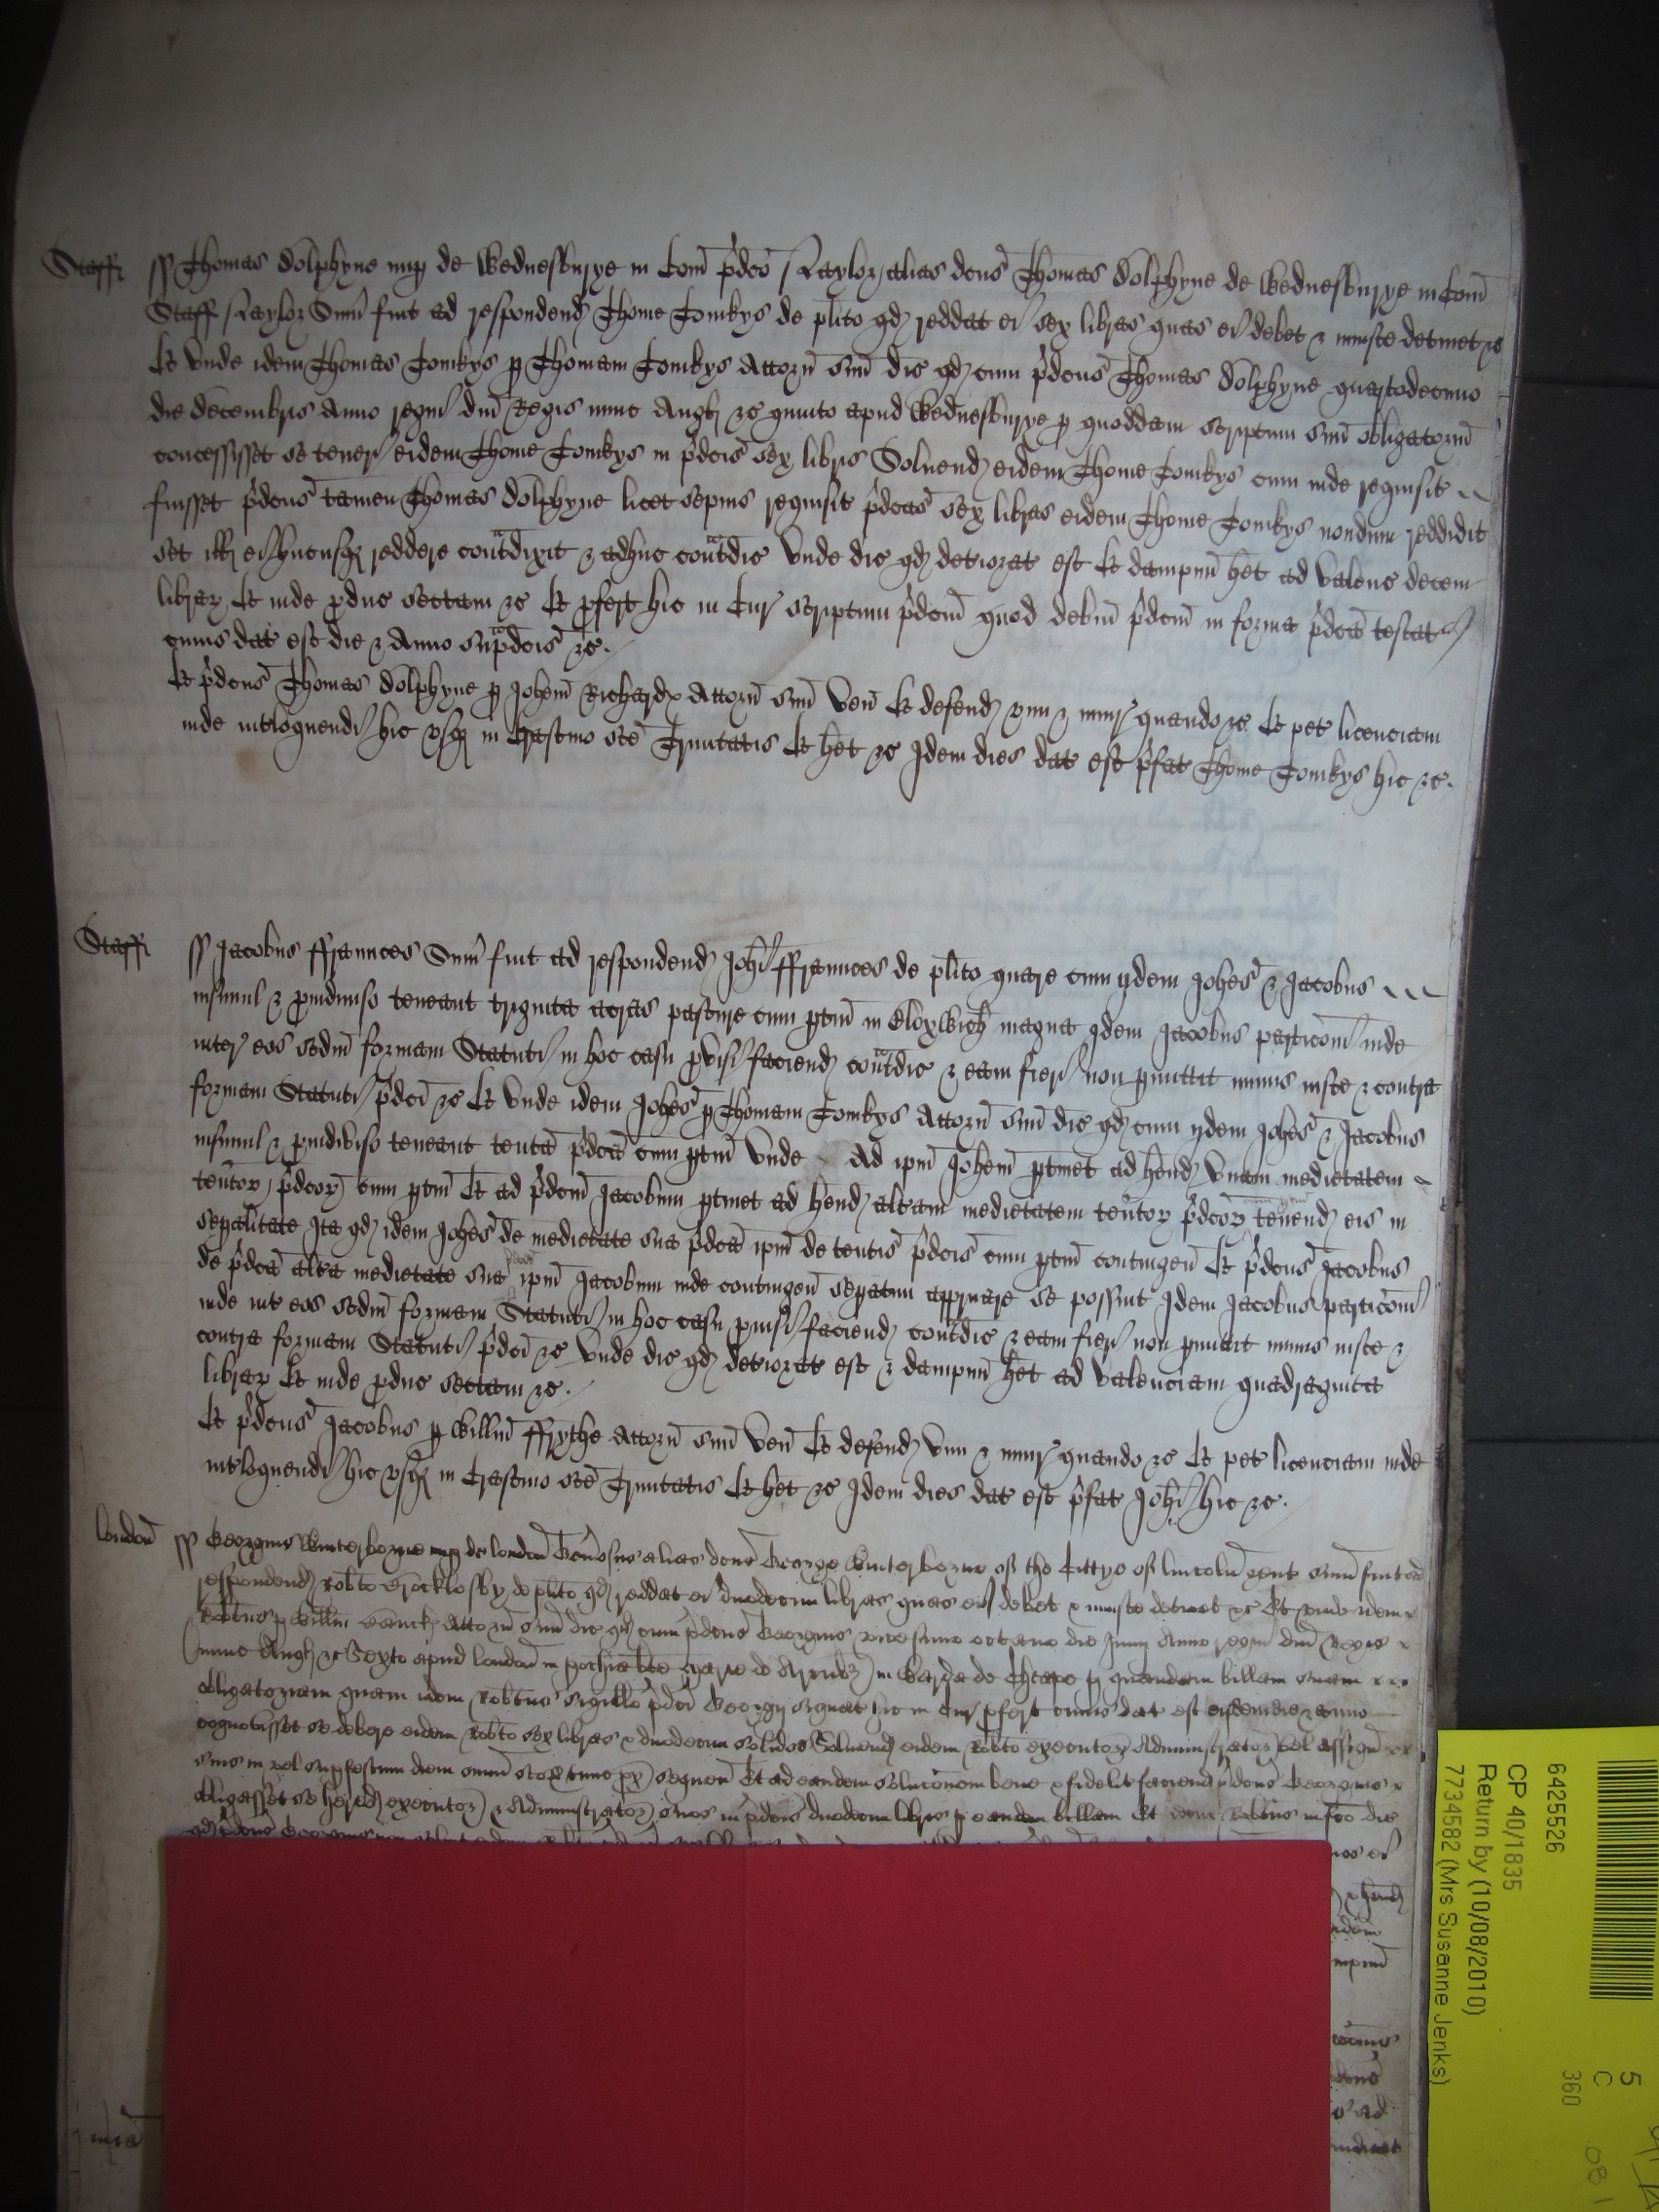 Staff ss Thomas Dolphyne nup de Wednesburye in Com pdco Taylor alias dcus Thomas Dolphyne de Wednesburye in Com
Staff Taylor Sum fuit ad respondend Thome Tomkys de plito qd reddat ei sex libras quas ei debet & iniuste detinet &c
Et unde idem Thomas Tomkys p Thomam Tomkys Attorn suu dic qd cum pdcus Thomas Dolphyne quartodecimo
die decembris Anno regni dni Regis nunc Angl &c quinto apud Wednesburye p quoddam scriptum suu obligatoriu
concessisset se teneri eidem Thome Tomkys in pdcis sex libris Soluend eidem Thome Tomkys cum inde requisit
fuisset pdcus tamen Thomas Dolphyne licet sepius requisit pdcas sex libras eidem Thome Tomkys nondum reddidit
set ill ei hucusq reddere contdixit & adhuc contdic Unde dic qd deteriorat est Et dampnu het ad valenc decem
librar Et inde pduc sectam &c Et pfert hic in Cur scriptum pdcm quod debitu pdcm in forma pdca testat
cuius dat est die & Anno supdcis &c
Et pdcus Thomas Dolphyne p Johem Richard Attorn suu ven Et defend vim & iniur quando &c Et pet licenciam
inde intloquendi hic usq in Crastino sce Trinitatis Et het &c Idem dies dat est pfat Thome Tomkys hic &c
Staff ss Jacobus ffraunces Sum fuit ad respondend Johi ffraunces de plito quare cum ijdem Johes & Jacobus
insimul & pindiuiso teneant triginta acras pasture cum ptin in Bloxwich magna idem Jacobus particoem inde
inter eos scdm formam Statuti in hoc casu puisi faciend contdic & eam fieri non pmittit minus iuste & contra
formam Statuti pdci &c Et Unde idem Johes p Thomam Tomkys Attorn suu dic qd cum ijdem Johes & Jacobus
insimul & pindiviso teneant tenta pdca cum ptin Unde Ad ipm Johem ptinet ad hend Unam medietatem
tentor pdcor cum ptin Et ad pdcm Jacobum ptinet ad hend altam medietatem tentor pdcor cum ptin tenend eis in
sepalitate Ita qd idem Johes de medietate sua pdca ipm de tentis pdcis cum ptin contingen Et pdcus Jacobus
de pdca alta medietate sua pdcm ipm Jacobum inde contingen sepatim appruare se possint Idem Jacobus particoem
inde int eos scdm formam Statuti in hoc casu puisi faciend contdic & eam fieri non pmittit minus iuste &
contra formam Statuti pdci &c Unde dic qd deteriorat est & dampnu het ad valenciam quadraginta
librar Et inde pduc sectam &c
Et pdcus Jacobus p Willm ffrythe Attorn suu ven Et defend vim & iniur quando &c Et pet licenciam inde
intloquendi hic usq in Crastino sce Trinitatis Et het &c Idem dies dat est pfat Johi hic &c
London ss Georgius Winterborne nup de london Generosus alias dcus George Winterborne of the Cittye of lincoln gent sum fuit ad
respondend Robto Brocklesby de plito qd reddat ei duodecim libras quas ei debet & iniuste detinet &c Et unde idem
Robtus p Willm Attorn suu dic qd cum pdcus Georgius vicesimo octavo die Junij Anno regni dni Regis
nunc Angl &c Sexto apud london in pochia bte Marie de Arcub in Warda de Cheape p quandam billam suam
obligatoriam quam idem Robtus sigillo pdci Georgij signat hic in Cur pfert cuius dat est eisdem die & anno
cognovisset se debere eidem Robto sex libras & duodecim solidos Soluend eidem Robto executor Administrator vel assign
suis in vel sup festum diem omniu scor tunc px sequen Et ad eandem solucoem bene & fidelit faciend pdcus Georgius
obligasset se hered executor & Administrator suos in pdcis duodecim libris p eandem billam Et idem Robtus in fco dic
qd pdcus Georgius non
6425526
CP 40/1835
Return by (10/08/2010)
7734582 (Mrs Susanne Jenks)
5
C
360